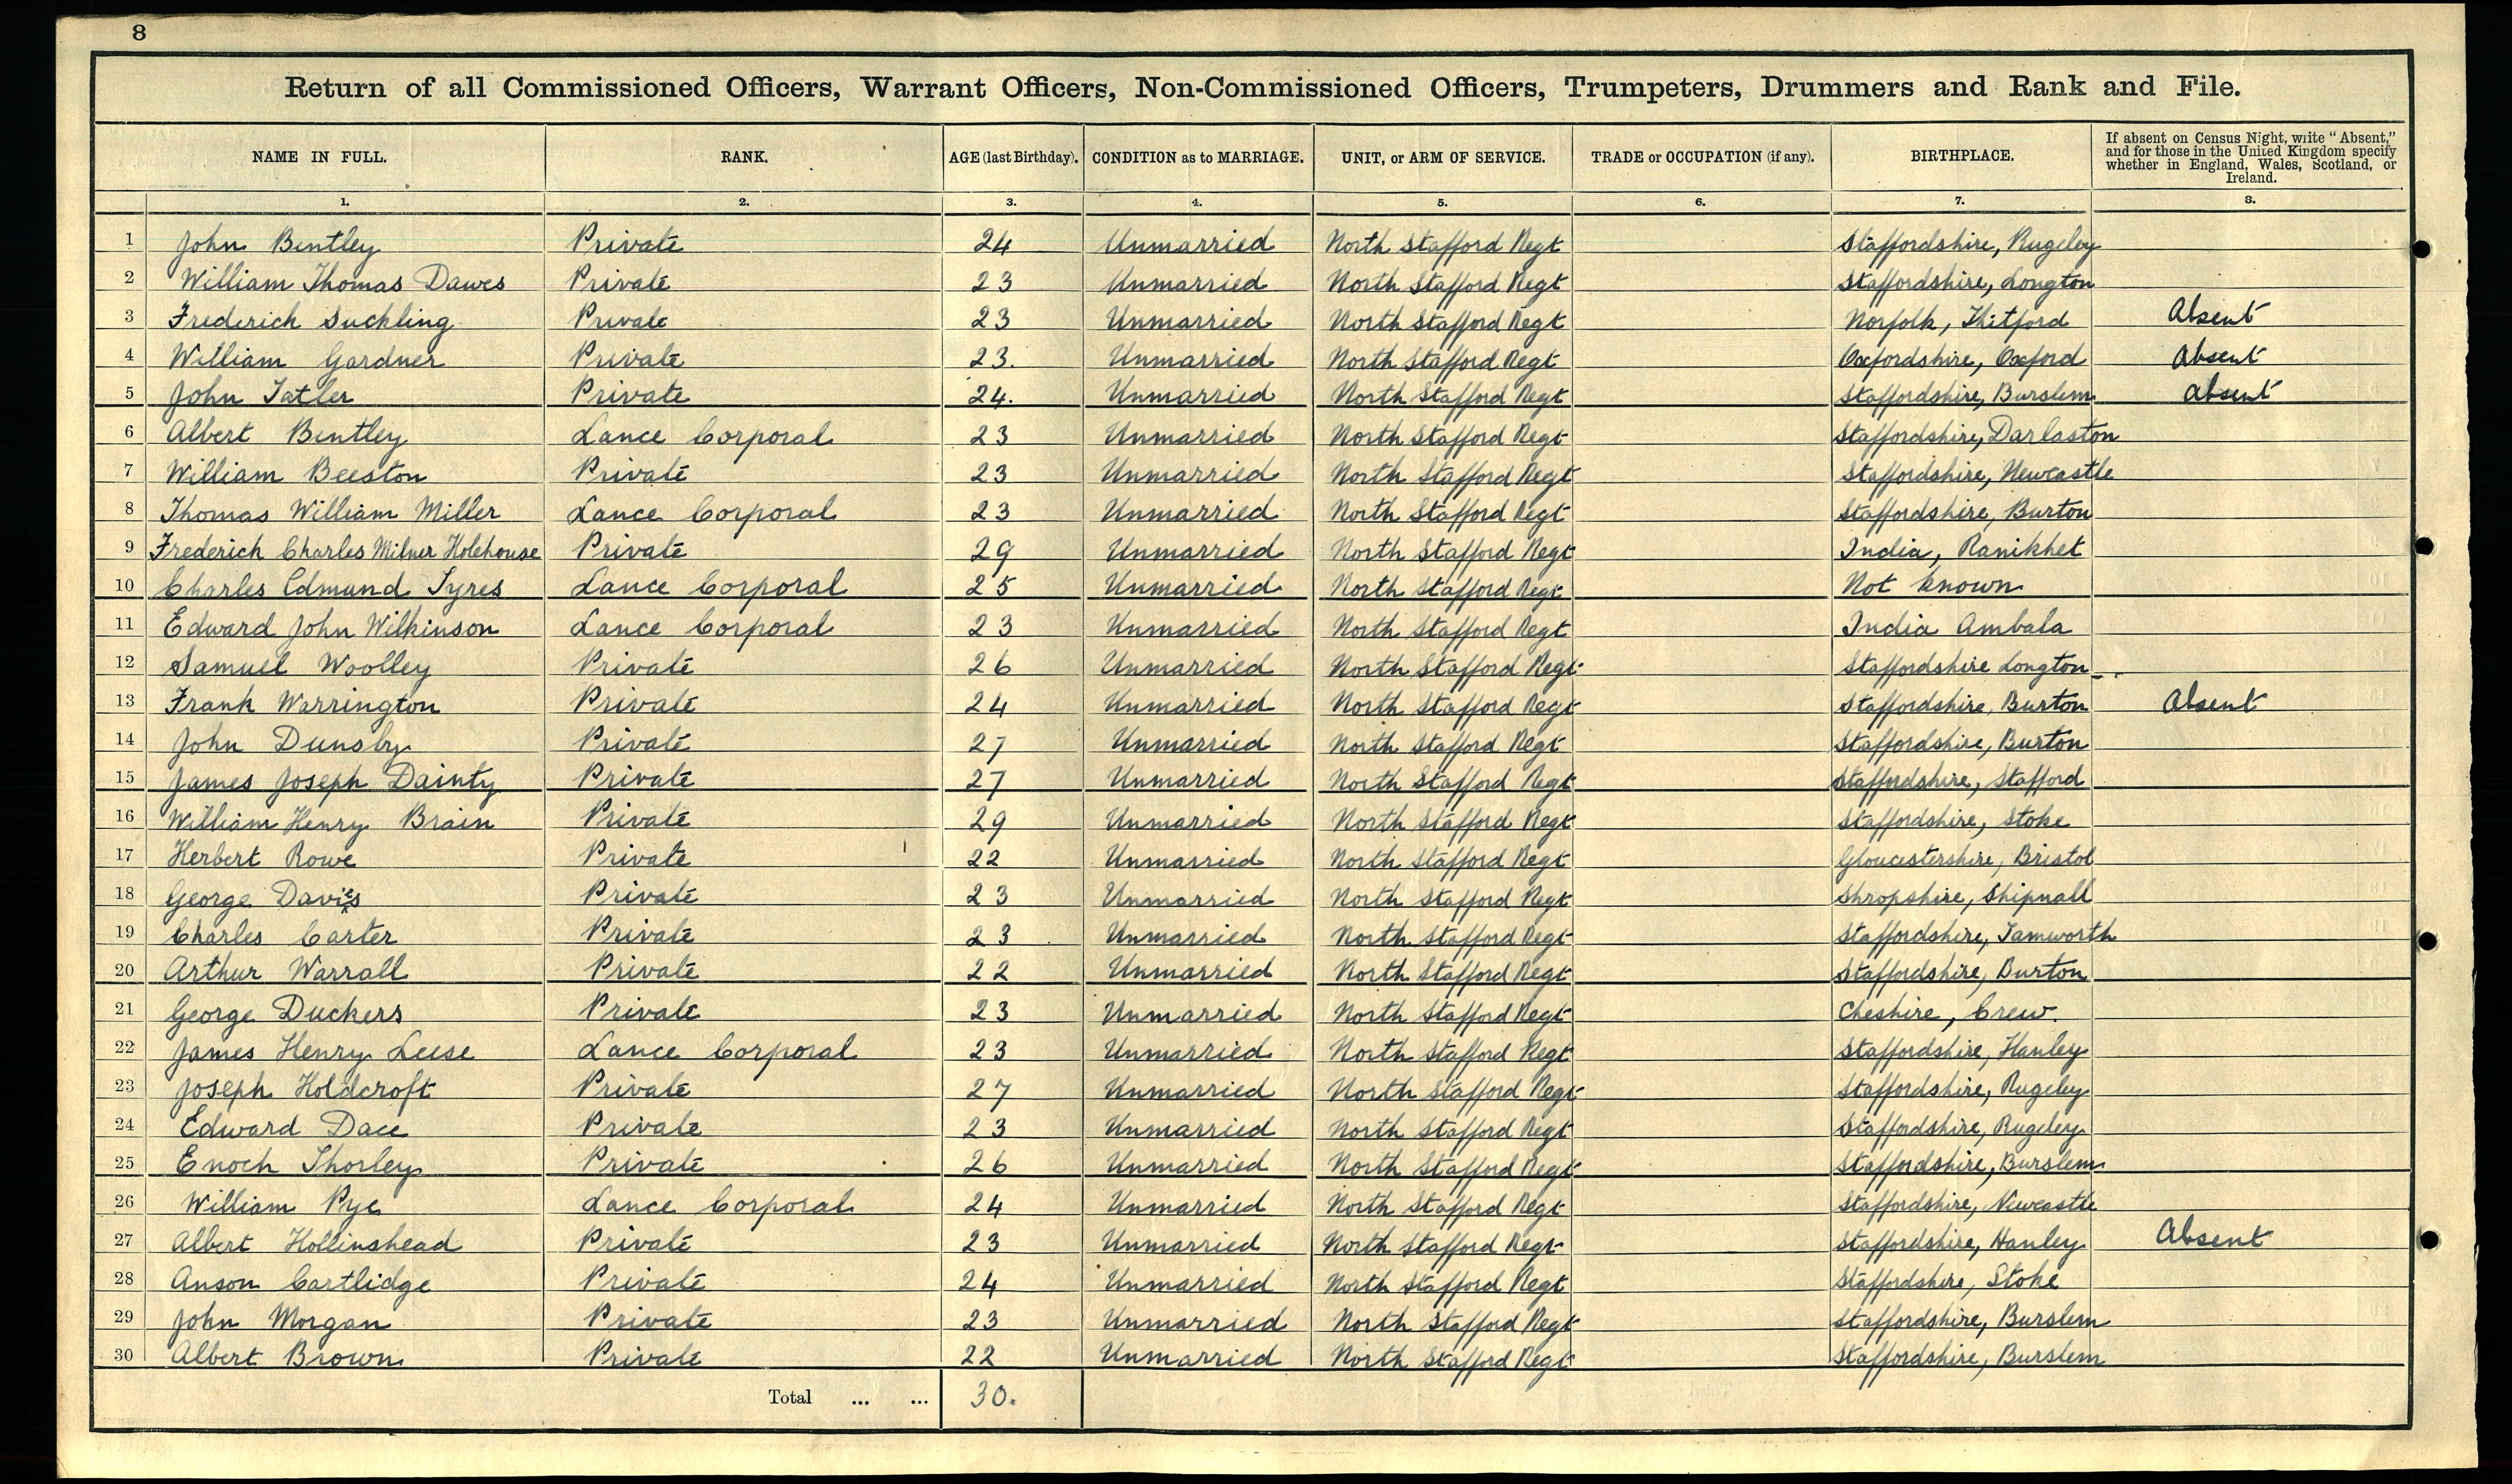 8
Return of all Commissioned Officers, Warrant Officers, Non-Commissioned Officers, Trumpeters, Drummers and Rank and File.
NAME IN FULL. RANK. AGE (last Birthday). CONDITION as to MARRIAGE. UNIT, or ARM OF SERVICE. TRADE or OCCUPATION (if any). BIRTHPLACE. If absent on Census Night, write "Absent," and for those in the United Kingdom specify whether in England, Wales, Scotland, or Ireland.
1. 2. 3. 4. 5. 6. 7. 8.
1 John Bentley Private 24 Unmarried North Stafford Regt Staffordshire, Rugeley
2 William Thomas Dawes Private 23 Unmarried North Stafford Regt Staffordshire, Longton
3 Frederick Suckling Private 23 Unmarried North Stafford Regt Norfolk, Thitford Absent
4 William Gardner Private 23. Unmarried North Stafford Regt Oxfordshire, Oxford Absent
5 John Tatler Private 24. Unmarried North Stafford Regt Staffordshire, Burslem Absent
6 Albert Bentley Lance Corporal 23 Unmarried North Stafford Regt Staffordshire, Darlaston
7 William Beeston Private 23 Unmarried North Stafford Regt Staffordshire, Newcastle
8 Thomas William Miller Lance Corporal 23 Unmarried North Stafford Regt Staffordshire, Burton
9 Frederick Charles Milner Holehouse Private 29 Unmarried North Stafford Regt India, Ranikhet
10 Charles Edmund Tyres Lance Corporal 25 Unmarried North Stafford Regt Not known
11 Edward John Wilkinson Lance Corporal 23 Unmarried North Stafford Regt India Ambala
12 Samuel Woolley Private 26 Unmarried North Stafford Regt Staffordshire Longton
13 Frank Warrington Private 24 Unmarried North Stafford Regt Staffordshire, Burton Absent
14 John Dunsby Private 27 Unmarried North Stafford Regt Staffordshire, Burton
15 James Joseph Dainty Private 27 Unmarried North Stafford Regt Staffordshire, Stafford
16 William Henry Brain Private 29 Unmarried North Stafford Regt Staffordshire, Stoke
17 Herbert Rowe Private 22 Unmarried North Stafford Regt Gloucestershire, Bristol
18 George Davies Private 23 Unmarried North Stafford Regt Shropshire, Shipnall
19 Charles Carter Private 23 Unmarried North Stafford Regt Staffordshire, Tamworth
20 Arthur Warrall Private 22 Unmarried North Stafford Regt Staffordshire, Burton
21 George Duckers Private 23 Unmarried North Stafford Regt Cheshire, Crew.
22 James Henry Leese Lance Corporal 23 Unmarried North Stafford Regt Staffordshire, Hanley
23 Joseph Holdcroft Private 27 Unmarried North Stafford Regt Staffordshire, Rugeley
24 Edward Dace Private 23 Unmarried North Stafford Regt Staffordshire, Rugeley
25 Enoch Thorley Private 26 Unmarried North Stafford Regt Staffordshire, Burslem
26 William Pye Lance Corporal 24 Unmarried North Stafford Regt Staffordshire, Newcastle
27 Albert Hollinshead Private 23 Unmarried North Stafford Regt Staffordshire, Hanley Absent
28 Anson Cartlidge Private 24 Unmarried North Stafford Regt Staffordshire, Stoke
29 John Morgan Private 23 Unmarried North Stafford Regt Staffordshire, Burslem
30 Albert Brown Private 22 Unmarried North Stafford Regt Staffordshire, Burslem
Total ... ... 30.